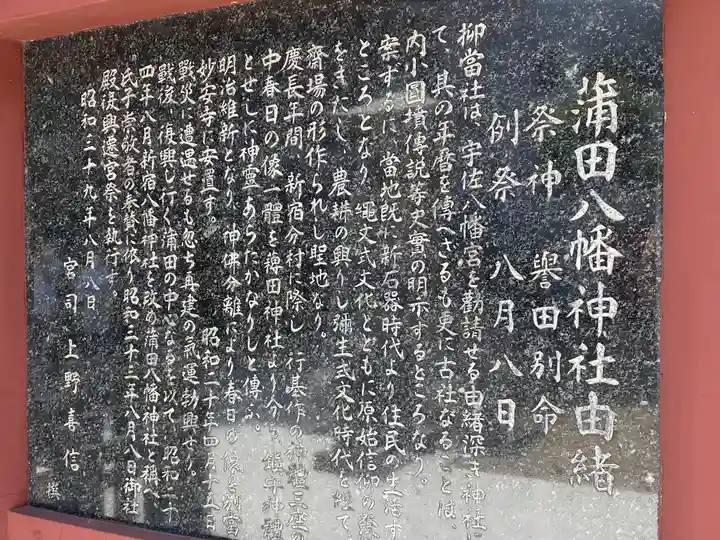 蒲田八幡神社由緒
祭神 譽田別命
例祭 八月八日
抑當社は、宇佐八幡宮を勸請せる由緒深き神社に
て、其の年暦を傳へざるも更に古社なることは、
内小圓墳傳説等史實の明示するところなり。
案ずるに、當地既に新石器時代より住民の生活す
ところとなり、繩文式文化とともに原始信仰の發
をきたし、農耕の興りし彌生式文化時代を經て、
齋場の形作られし聖地なり。
慶長年間、新宿分村に際し、行基作の神體三座の
中春日の像一體を薭田神社より分ち、鎮守神
とせしに神靈あらたかなりしと傳ふ。
明治維新となり、神佛分離により春日の像を別當
妙安寺に安置す。 昭和二十年四月十五日
戰災に遭遇せるも忽ち再建の氣運勃興せり。
戰後、復興し行く蒲田の中心なるを以て、昭和二十
四年八月新宿八幡神社を改め蒲田八幡神社と稱へ、
氏子崇敬者の奉賛に依り昭和三十三年八月八日御社
殿復興遷宮祭を執行す。
昭和三十九年八月八日
宮司 上野喜信 撰